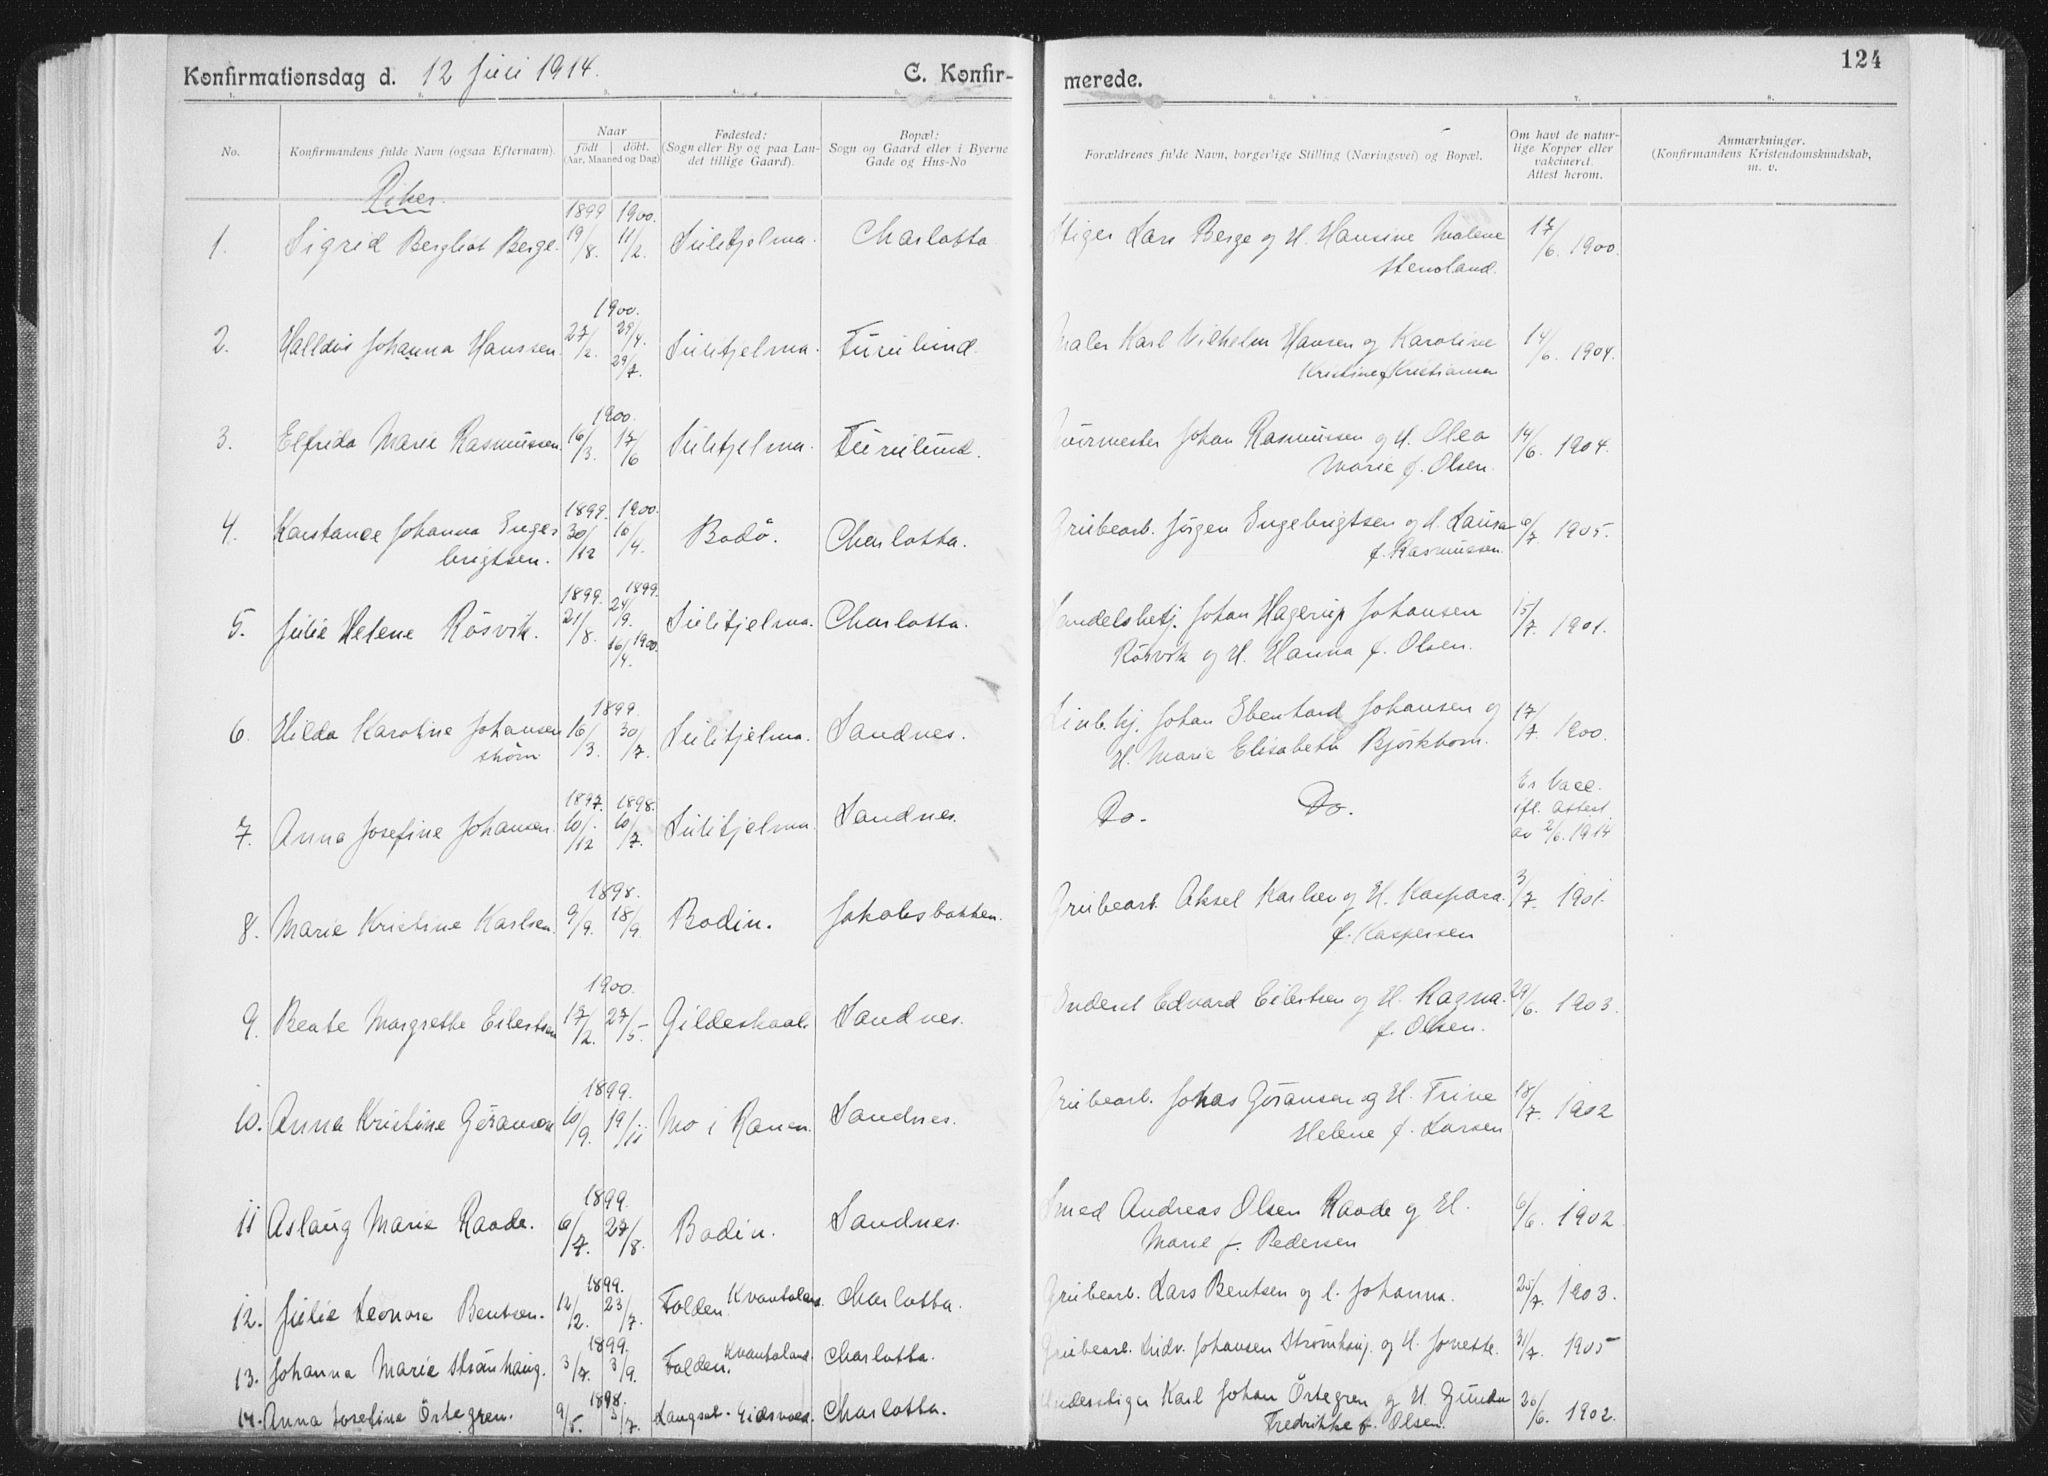 124
Konfirmationsdag d. 12 Juli 1914. C. Konfir- merede.
1. 2. 3. 4. 5. 6. 7. 8.
No. Konfirmandens fulde Navn (ogsaa Efternavn). Naar født döbt. (Aar, Maaned og Dag) Fødested: (Sogn eller By og paa Lan- det tillige Gaard). Bopæl: Sogn og Gaard eller i Byerne Gade og Hus-No Forældrenes fulde Navn, borgerlige Stilling (Næringsvei) og Bopæl. Om havt de natur- lige Kopper eller vakcineret. Attest herom. Anmærkninger. (Konfirmandens Kristendomskundskab, m. v.
Piker.
1899 1900.
1. Sigrid Bergliot Berge. 19/8. 11/2. Sulitjelma. Charlotta Stiger Lars Berge og H. Hansine Malene 17/6 1900.
Stensland.
1900.
2. Halldis Johanna Hanssen 27/2. 29/4. Sulitjelma. Furulund. Maler Karl Vilhelm Hansen og Karoline 14/6 1904.
29/7. Kristine f. Kristiansen
1900.
3. Elfrida Marie Rasmussen 16/3. 17/6 Sulitjelma. Furulund. Murmester Johan Rasmussen og H. Olea 14/6. 1904.
Marie f. Olsen.
1899. 1900.
4. Konstance Johanna Enge= 30/12 16/4. Bodö. Charlotta. Grubearb. Jörgen Engebrigtsen og H. Laura 6/7. 1905.
brigtsen. f. Rasmussen.
1899. 1899.
5. Julie Helene Rösvik. 21/8. 24/9. Sulitjelma. Charlotta. Handelsbetj. Johan Hagerup Johansen 15/7. 1901.
16/4. 1900. Rösvik og H. Hanna f. Olsen.
1899.
6. Hilda Karoline Johansen 16/3. 30/7. Sulitjelma. Sandnes. Johan Edvard Johansen og 17/7. 1900.
ström H. Marie Elisabeth Björkbom.
1897. 1898.
7. Anna Josefine Johansen. 10/12 10/7. Sulitjelma. Sandnes. Do. Do. Er Vacc. ifl. attest av 2/6. 1914
1898.
8. Marie Kristine Karlsen. 9/9. 18/9. Bodin. Jakobsbakken. Grubearb. Aksel Karlsen og H. Kaspara 3/7. 1901.
f. Kaspersen
1900.
9. Beate Margrethe Eilertsen 17/2. 27/5. Gildeskaal. Sandnes. Edvard Eilertsen og H. Ragna 29/6. 1903.
f. Olsen.
1899.
10. Anna Kristine Göransen 10/9. 19/11 Mo i Ranen. Sandnes. Grubearb. Johas Göransen og H. Trine 18/7. 1902
Helene f. Larsen
1899.
11 Aslaug Marie Raade. 6/7. 27/8. Bodin. Sandnes. Smed Andreas Olsen Raade og H. 6/6. 1902.
Marie f. Pedersen
1899.
12. Julie Leonora Bentsen. 12/2. 23/7. Folden Kvantoland. Charlotta. Grubearb. Lars Bentsen og H. Johanna. 25/7. 1903.
1899.
13. Johanna Marie Strömhaug. 3/7. 3/9. Folden. Kvantoland. Charlotta. Grubearb. Ludv. Johansen Strömhaug. og H. Jonette. 31/7. 1905
1898.
14. Anna Josefine Örtegren. 9/5. 3/7. Langset. Eidsvold. Charlotta. Understiger Karl Johan Örtegren og H. Gunda 20/6. 1902.
Fredrikke f. Olsen.